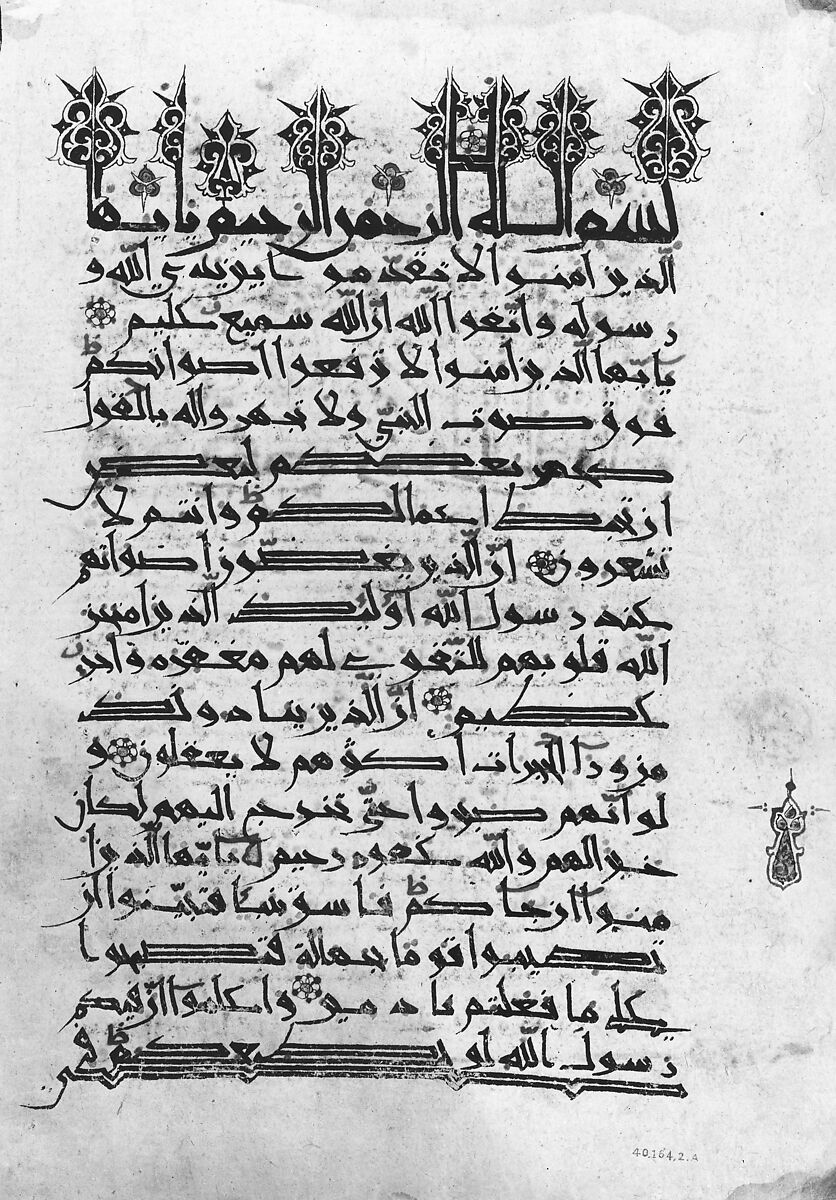 بسم الله الرحمن الرحيم يايها
الذين امنوا لا تقدموا بين يدي الله و
رسوله واتقوا الله ان الله سميع عليم
يايها الذين امنوا لا ترفعوا اصواتكم
فوق صوت النبي ولا تجهروا له بالقول
كجهر بعضكم لبعض
ان تحبط اعمالكم وانتم لا
تشعرون ان الذين يغضون اصواتهم
عند رسول الله اوليك الذين امتحن
الله قلوبهم للتقوى لهم مغفرة واجر
عظيم ان الذين ينادونك
من ورا الحجرات اكثرهم لا يعقلون و
لو انهم صبروا حتى تخرج اليهم لكان
خيرا لهم والله غفور رحيم يايها الذين ا
منوا ان جاكم فاسق بنبا فتبينوا ان
تصيبوا قوما بجهالة فتصبحوا
على ما فعلتم نادمين واعلموا ان فيكم
رسول الله لو يطيعكم في
40.164.2.A